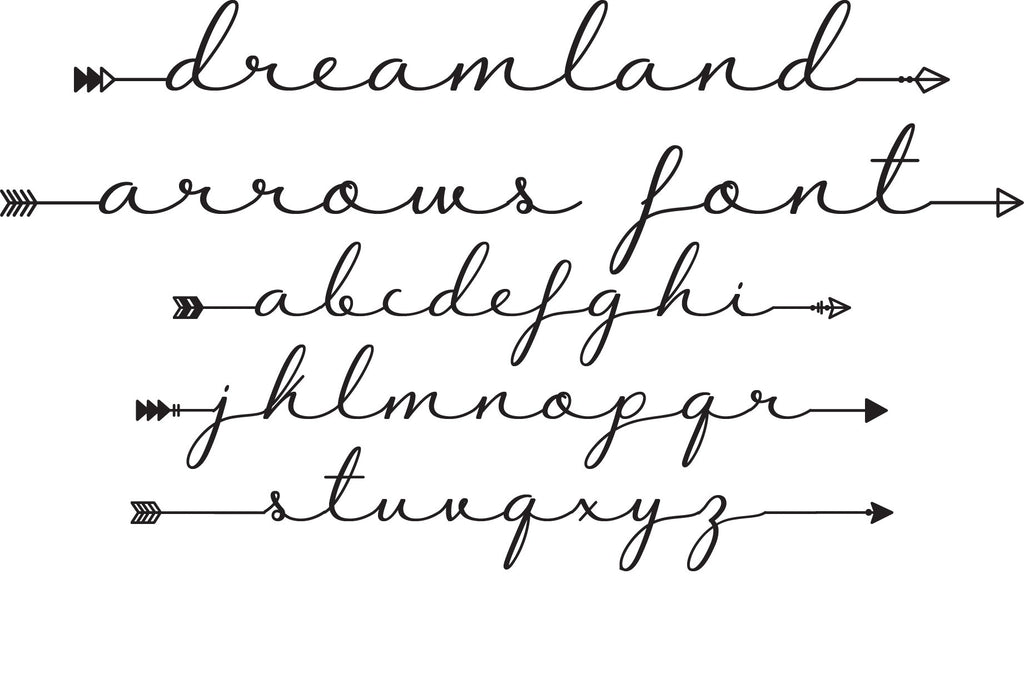 dreamland
arrows font
abcdefghi
jklmnopqr
stuvqxyz